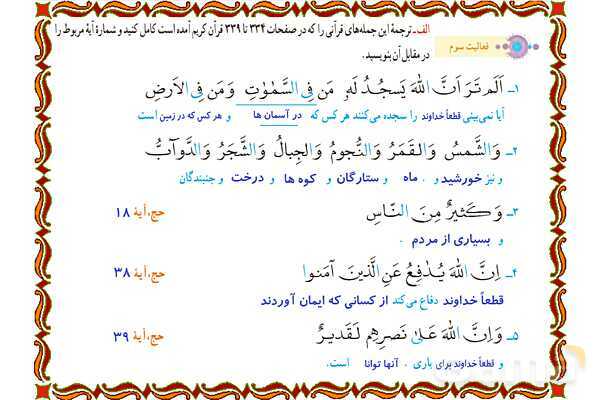 فعالیت سوم
الف ـ ترجمهٔ این جمله‌های قرآنی را که در صفحات ۳۳۴ تا ۳۳۹ قرآن کریم آمده است کامل کنید و شمارهٔ آیهٔ مربوط را
در مقابل آن بنویسید.
۱ـ اَلَم تَرَ اَنَّ اللّٰهَ يَسجُدُ لَهٗ مَن فِی السَّمٰوٰتِ وَ مَن فِی الاَرضِ
آیا نمی‌بینی قطعاً خداوند را سجده می‌کنند هر کس که در آسمان ها و هر کس که در زمین است
۲ـ وَ الشَّمسُ وَ القَمَرُ وَ النُّجومُ وَ الجِبالُ وَ الشَّجَرُ وَ الدَّوآبُّ
و نیز خورشید و . ماه و ستارگان و کوه ها و درخت و جنبندگان
۳ـ وَ كَثيرٌ مِنَ النّاسِ حج، آیهٔ ۱۸
و بسیاری از مردم .
۴ـ اِنَّ اللّٰهَ يُدٰفِعُ عَنِ الَّذينَ آمَنوا حج، آیهٔ ۳۸
قطعاً خداوند دفاع می‌کند از کسانی که ایمان آوردند
۵ـ وَ اِنَّ اللّٰهَ عَلىٰ نَصرِهِم لَقَديرٌ حج، آیهٔ ۳۹
و قطعاً خداوند برای یاری . آنها توانا است.